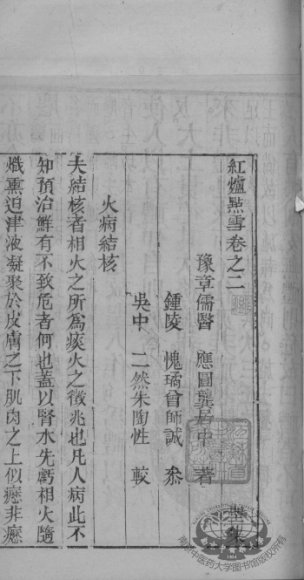 紅爐點雪卷之二
豫章儒醫 應圓龔居中 著
鍾陵 愧璚曾師誠 叅
吳中 二然朱陶性 較
火病結核
夫結核者相火之所為痰火之徵兆也凡人病此不
知預治鮮有不致危者何也蓋以腎水先虧相火隨
熾熏迫津液凝聚於皮膚之下肌肉之上似癧非癧
南京中医药大学图书馆版权所有